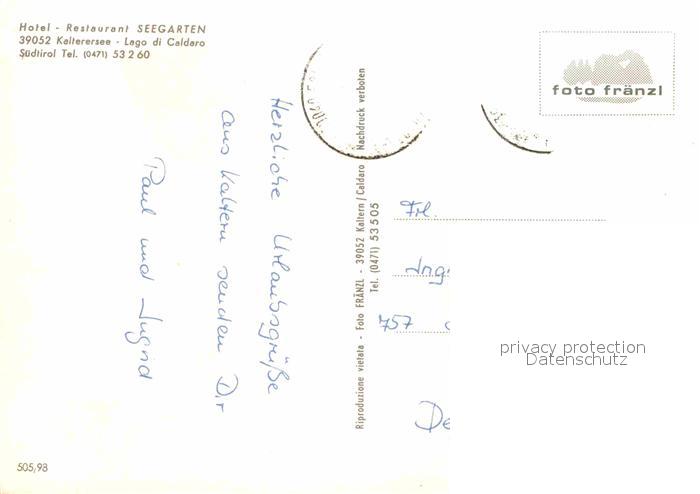 Hotel - Restaurant SEEGARTEN
39052 Kalterersee - Lago di Caldaro
Südtirol Tel. (0471) 53 2 60
Herzliche Urlaubsgrüße
aus Kaltern senden Dir
Paul und Ingrid
Riproduzione vietata - Foto FRÄNZL - 39052 Kaltern / Caldaro Nachdruck verboten
Tel. (0471) 53 5 05
foto fränzl
Frl.
Ing
757
De
privacy protection
Datenschutz
505,98